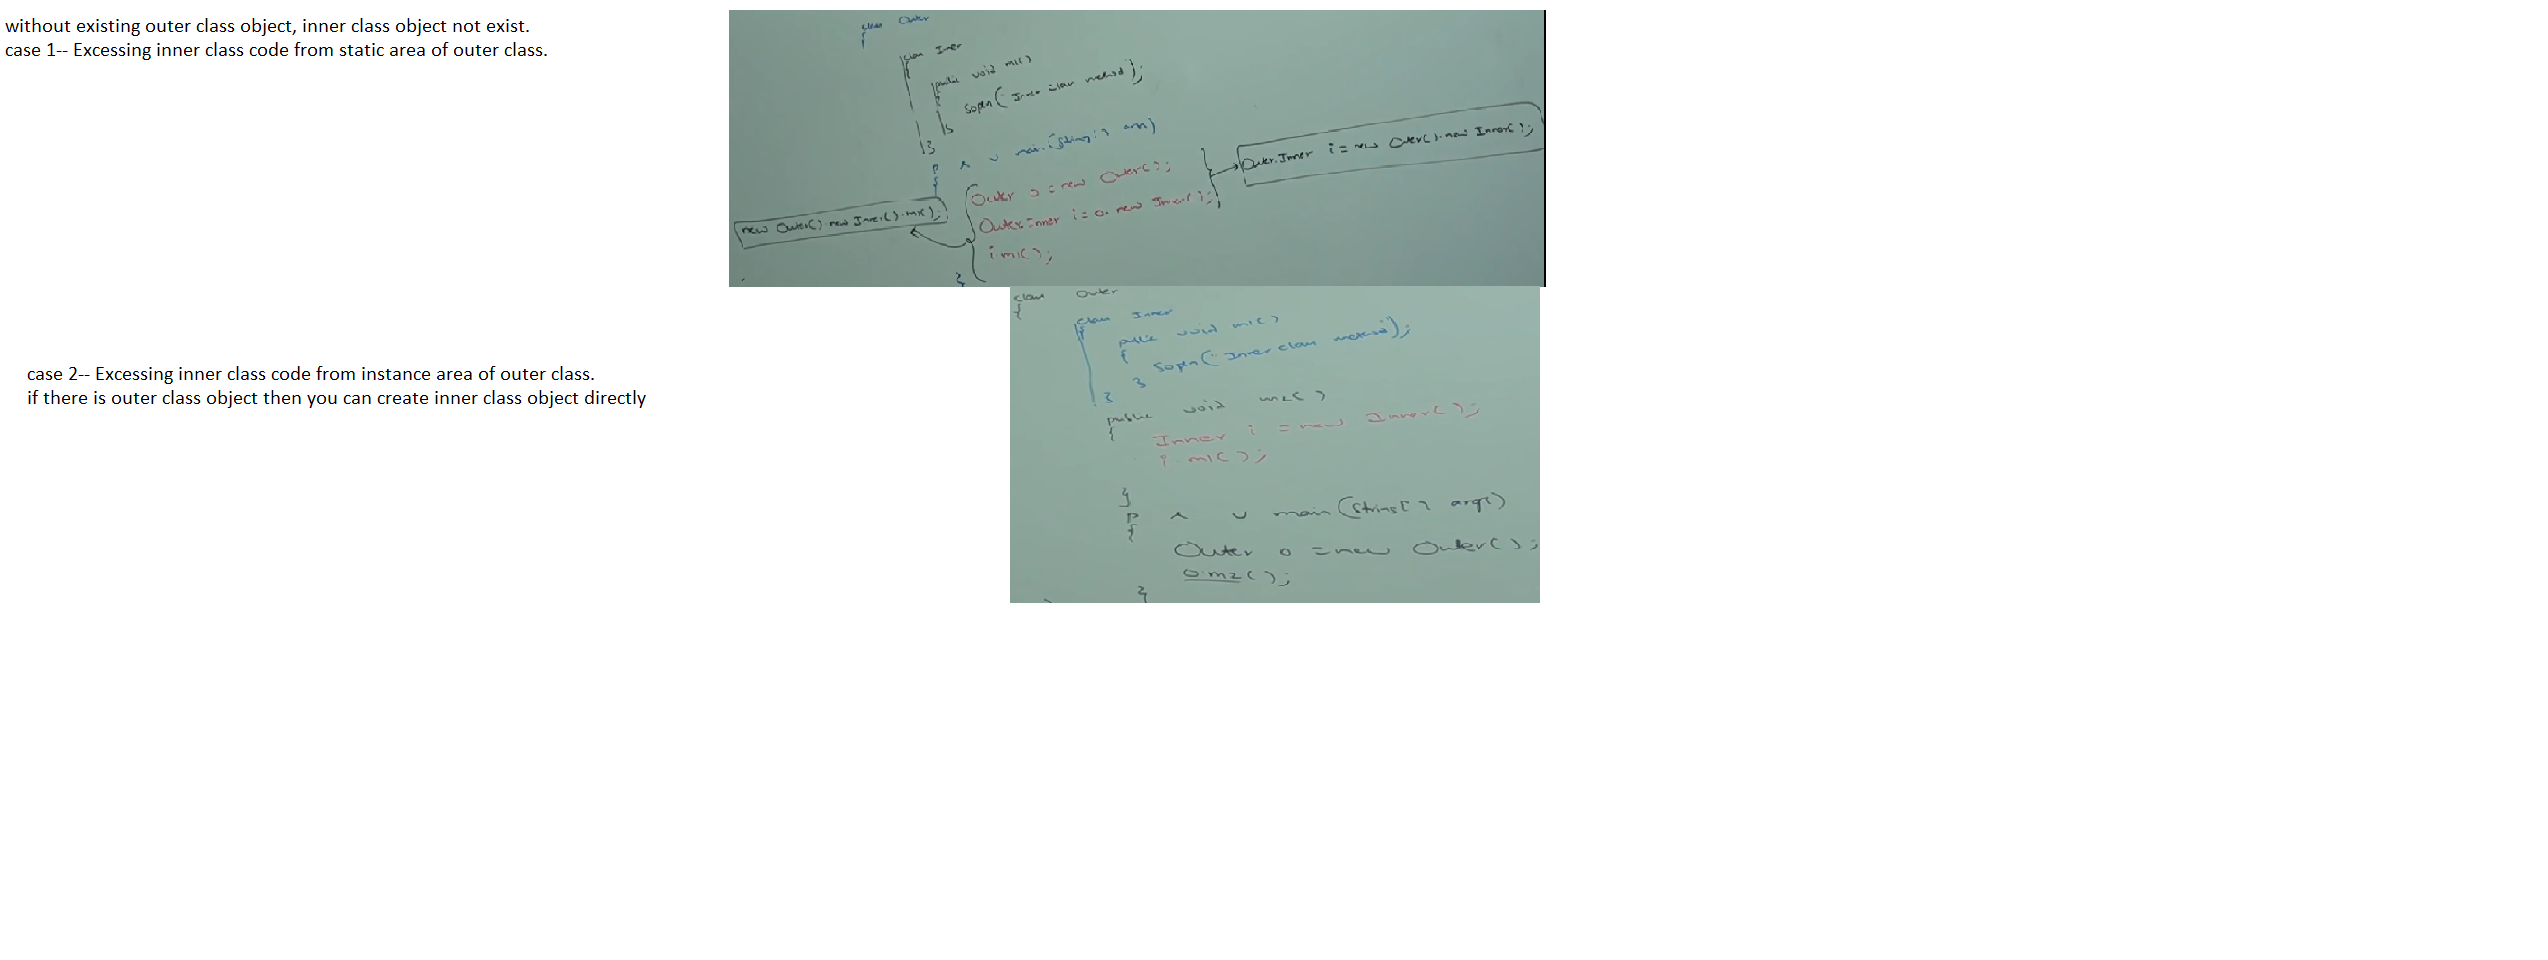 without existing outer class object, inner class object not exist.
case 1-- Excessing inner class code from static area of outer class.
class Outer
{
class Inner
{
public void m1()
{
Sopln("Inner class method");
}
}
P s v main(String[] args)
{
Outer o = new Outer();
Outer.Inner i = o.new Inner();
i.m1();
}
Outer.Inner i = new Outer().new Inner();
new Outer().new Inner().m1();
case 2-- Excessing inner class code from instance area of outer class.
if there is outer class object then you can create inner class object directly
class Outer
{
class Inner
{
public void m1()
{
Sopln("Inner class method");
}
}
public void m2()
{
Inner i = new Inner();
i.m1();
}
P s v main(String[] args)
{
Outer o = new Outer();
o.m2();
}